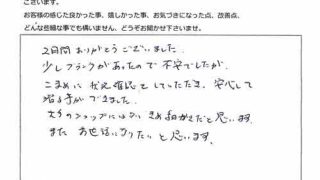 ざいます。
お客様の感じた良かった事、嬉しかった事、お気づきになった点、改善点、
どんな些細な事でも構いません、どうぞお聞かせ下さいませ。
2日間ありがとうございました。
少しブランクがあったので不安でしたが、
こまめに状況確認をしていただき、安心して
潜る事ができました。
大手のショップにはないきめ細かさだと思います。
また お世話になりたいと思います。